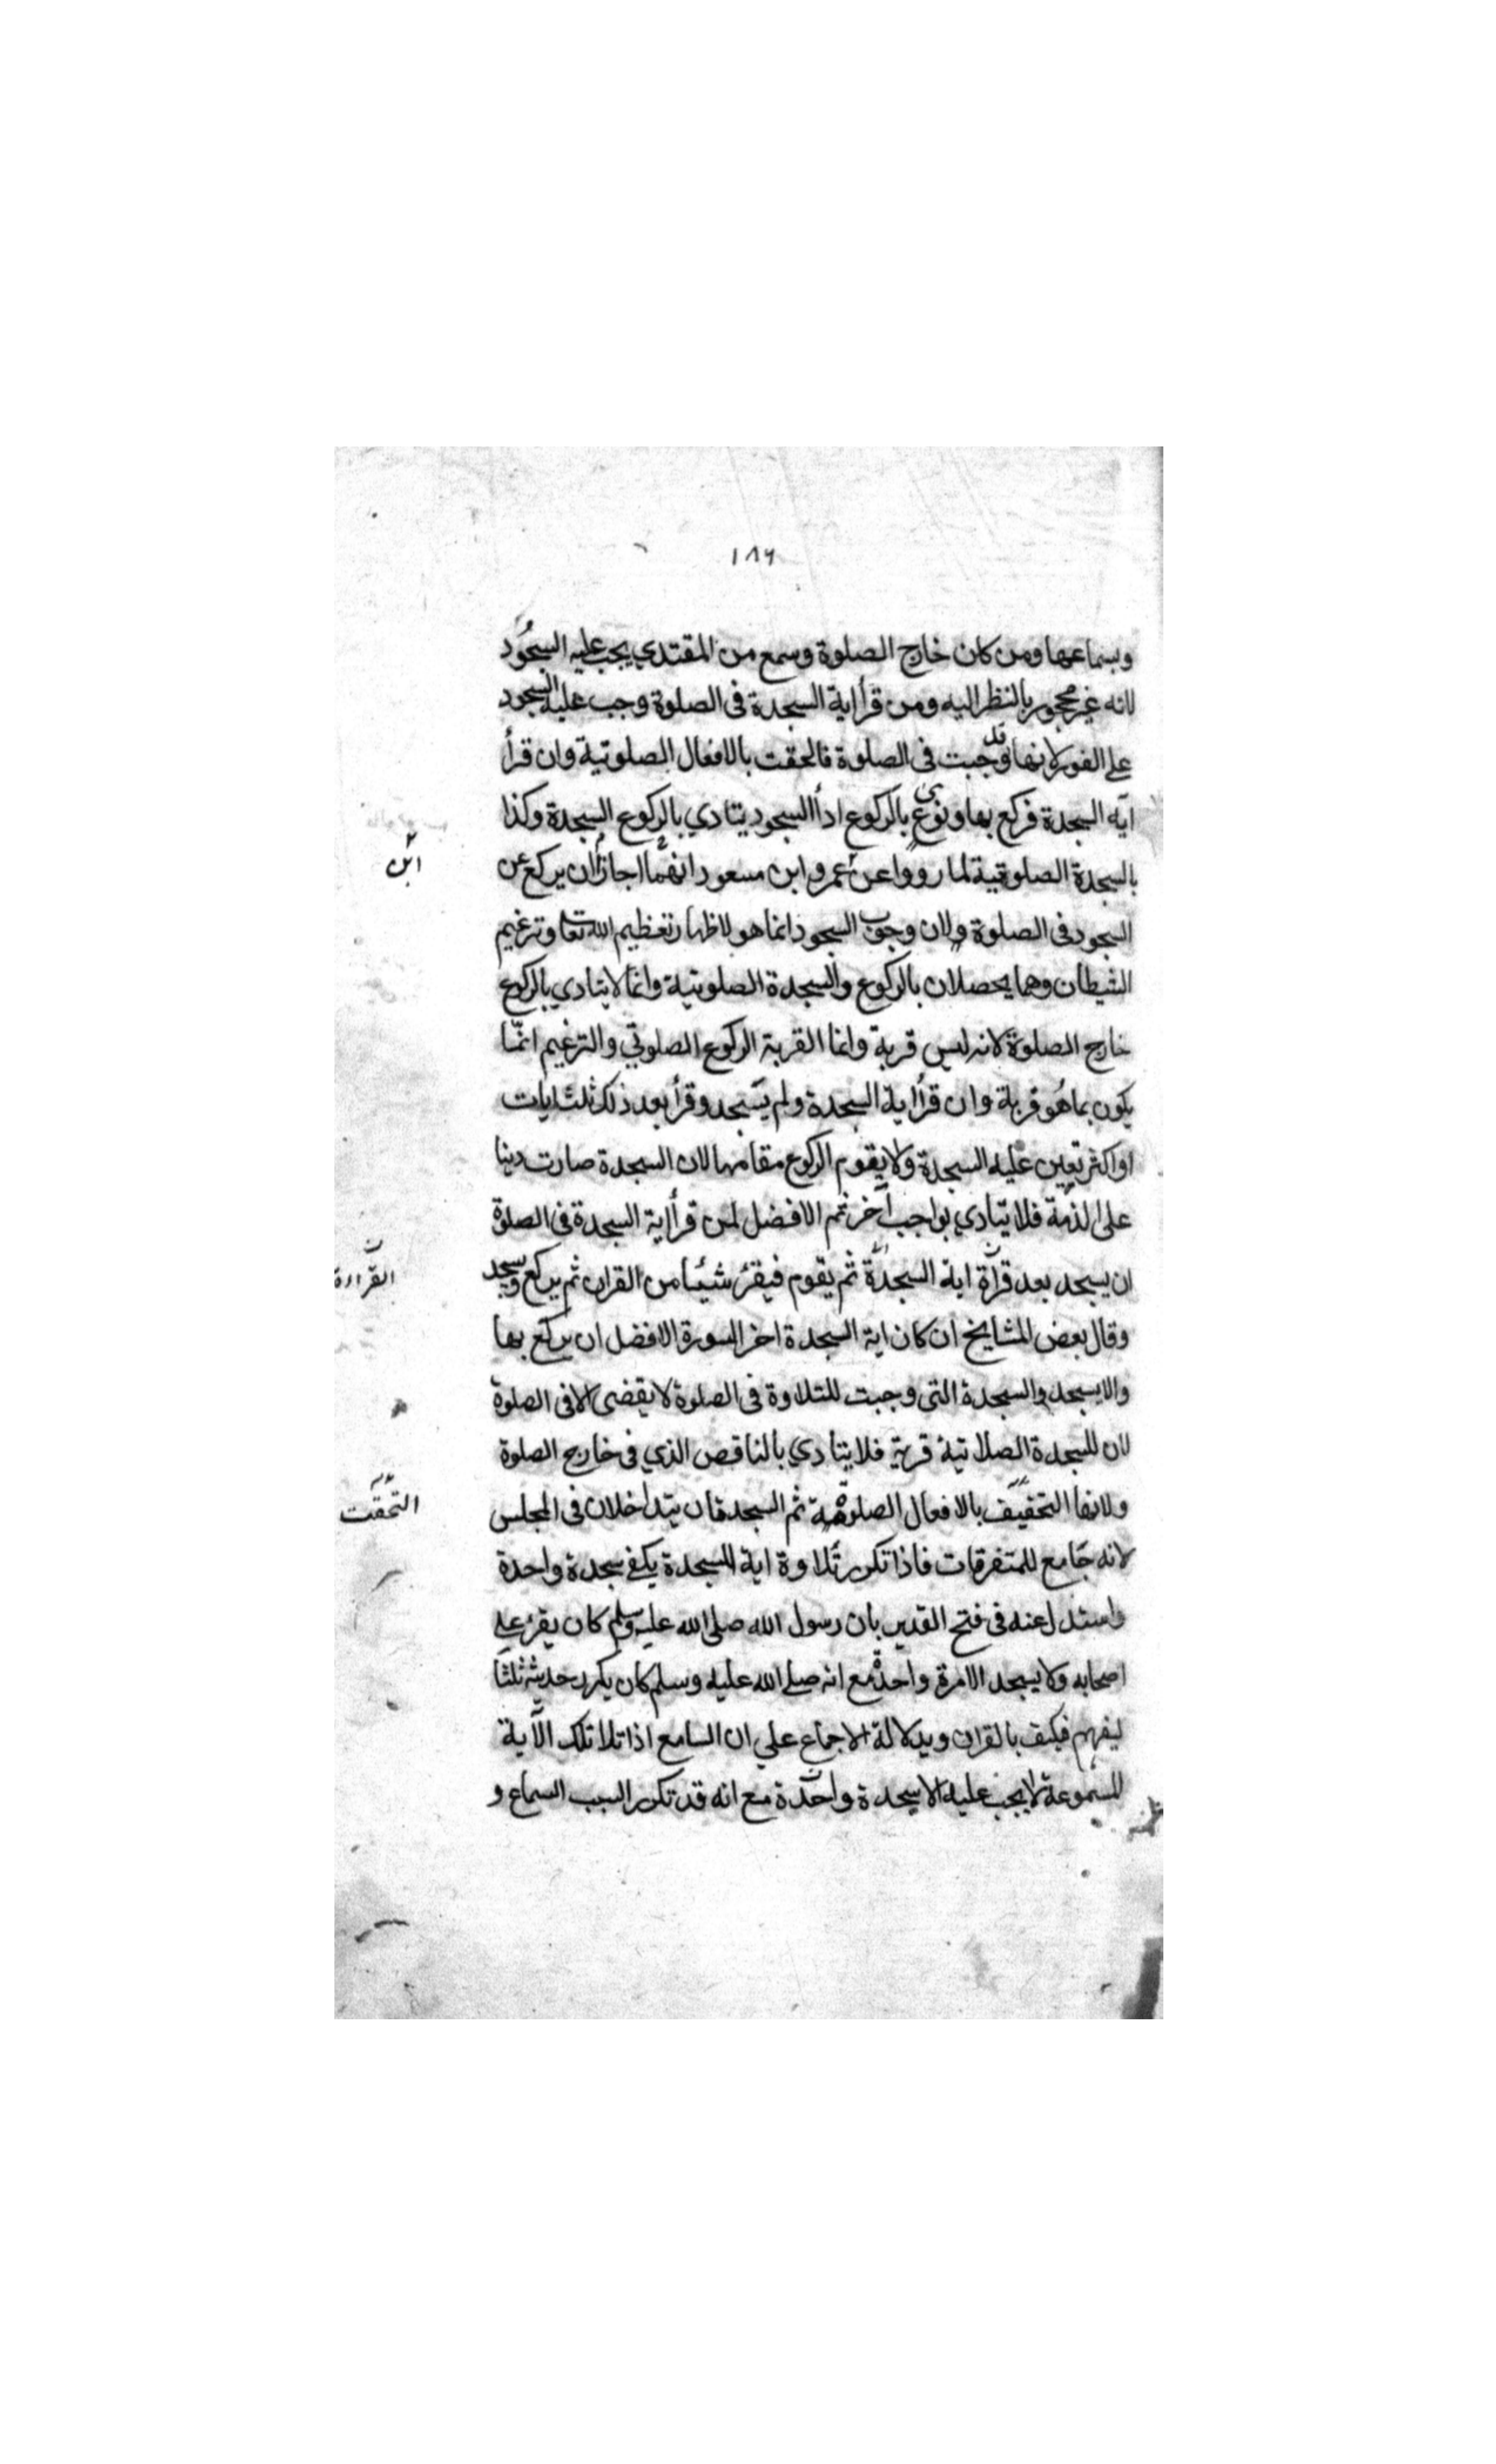 ١٨٦
وبسماعها ومن كان خارج الصلوة وسمع من المقتدي يجب عليه السجود
لانه غير محجور بالنظر اليه ومن قرأ اية السجدة فى الصلوة وجب عليه السجود
على الفور لانها قد وجبت فى الصلوة فالحقت بالافعال الصلوتية وان قرأ
اية السجدة فركع بها ونوى بالركوع اداأ السجود يتادي بالركوع السجدة وكذا
بالسجدة الصلوتية لما رووا عن عمر وابن مسعود انهما اجازا ان يركع عن
ابن
السجود فى الصلوة ولان وجوب السجود انما هو لاظهار تعظيم الله تعا وترغيم
الشيطان وهما يحصلان بالركوع والسجدة الصلوتية وانما لا يتادي بالركوع
خارج الصلوة لانه ليس قربة وانما القربة الركوع الصلوتي والترغيم انما
يكون بما هو قربة وان قرأ اية السجدة ولم يسجد وقرأ بعد ذلك ثلث ايات
او اكثر تعين عليه السجدة ولا يقوم الركوع مقامها لان السجدة صارت دينا
على الذمة فلا يتادي بواجب آخر ثم الافضل لمن قرأ اية السجدة فى الصلوة
ان يسجد بعد قرآة اية السجدة ثم يقوم فيقرء شيئا من القران ثم يركع ويسجد
القراءة
وقال بعض المشايخ ان كان اية السجدة اخر السورة الافضل ان يركع بها
والا يسجد والسجدة التى وجبت للتلاوة فى الصلوة لا يقضى الا فى الصلوة
لان للسجدة الصلاتية قربة فلا يتادي بالناقص الذي فى خارج الصلوة
ولانها التحفيف بالافعال الصلوتية ثم السجدتان يتداخلان فى المجلس
التحقت
لانه جامع للمتفرقات فاذا تكرر تلاوة اية السجدة يكفى سجدة واحدة
واستدل عنه فى فتح القدير بان رسول الله صلى الله عليه وسلم كان يقرء على
اصحابه ولا يسجد الا مرة واحدة مع انه صلى الله عليه وسلم كان يكرر حديثه ثلثا
ليفهم فكيف بالقران وبدلالة الاجماع علي ان السامع اذا تلا تلك الآية
المسموعة لا يجب عليه الا سجدة واحدة مع انه قد تكرر السبب السماع و